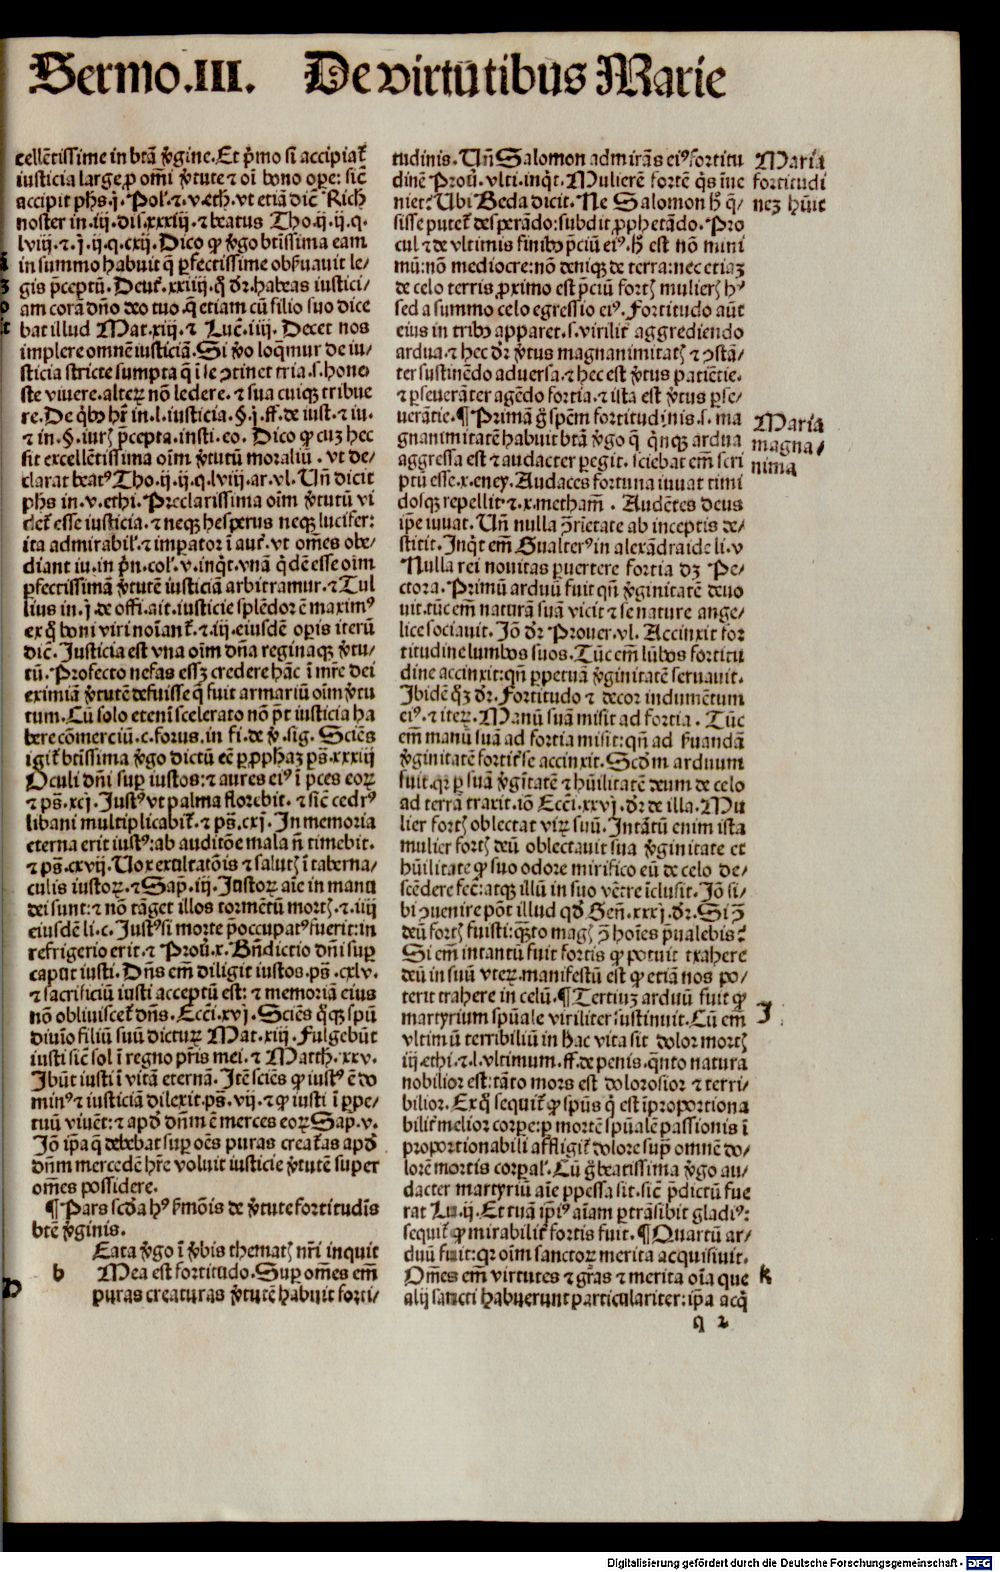 Sermo.III. De virtutibus Marie
cellētissime in btā v̄gine. Et p̄mo si accipiat᷑
iusticia large ꝓ omni v̄tute ⁊ oi bono ope: sic̄
accipit phs. ij. Pol. ⁊. v. eth. vt etiā dic̄ Rich
noster in. iij. dis. xxxiij. ⁊ beatus Tho. ij. ij. q.
lviij. ⁊. j. ij. q. cxij. Dico ꝙ v̄go btissima eam
in summo habuit q̄ ꝑfectissime obẜuauit le⸗
gis p̄ceptū. Deut᷑. xxiiij. q̄ dr̄. habeas iustici⸗
am corā dn̄o deo tuo. q̄ etiam cū filio suo dice
bat illud Mat. iij. ⁊ Luc̄. iiij. Decet nos
implere omnē iusticiā. Si v̄o loq̄mur de iu⸗
sticia stricte sumpta q̄ ī se ↄtinet tria. s. hone
ste viuere. alteꝝ non ledere. ⁊ sua cuiqꝫ tribue
re. De q̄bꝰ hr̄ in. l. iusticia. §. j. ff. de iust. ⁊ iu.
⁊ in. §. iurꝭ p̄cepta. insti. eo. Dico ꝙ cuꝫ hec
sit excellētissima oīm v̄tutū moraliū. vt de⸗
clarat beatꝰ Tho. ij. ij. q. lviij. ar. vl. Un̄ dicit
phs in. v. ethi. Preclarissima oīm v̄tutū vi
det᷑ esse iusticia. ⁊ neqꝫ hesperus neqꝫ lucifer:
ita admirabil. ⁊ imperator ī aut᷑. vt om̄es obe⸗
diant iu. in p̄n. col. v. inq̄t. vnā q̄dē esse oīm
ꝑfectissimā v̄tutē iusticiā arbitramur. ⁊ Tul
lius in. j. de offi. ait. iusticie splēdor ē maximꝰ
ex q̄ boni viri noīant᷑. ⁊ iij. eiusdē opis iterū
dic̄. Justicia est vna oīm dn̄a reginaqꝫ v̄tu⸗
tū. Profecto nefas esſꝫ credere hāc ī mr̄e dei
eximiā v̄tutē defuisse q̄ fuit armariū oīm v̄tu
tum. Cū solo etenī scelerato nō p̄t iusticia ha
bere cōmerciū. c. forus. in fi. de v̄. sig. Sciēs
igit᷑ btissima v̄go dictū eē ꝑ ꝓphaꝫ ps̄. xxxiij
Oculi dn̄i suꝑ iustos: ⁊ aures eiꝰ ī p̄ces eoꝝ
⁊ ps̄. xcj. Justꝰ vt palma florebit. ⁊ sic̄ cedrꝰ
libani multiplicabit᷑. ⁊ ps̄. cxj. In memoria
eterna erit iustꝰ: ab auditōe mala n̄ timebit.
⁊ ps̄. cxvij. Uox exultatōis ⁊ salutꝭ ī taberna⸗
culis iustoꝝ. ⁊ Sap. iij. Justoꝝ aīe in manu
dei sunt: ⁊ nō tāget illos tormētū mortꝭ. ⁊. iiij
eiusdē li. c. Justꝰ si morte p̄occupatꝰ fuerit: in
refrigerio erit. ⁊ Prou̇. x. Bn̄dictio dn̄i suꝑ
caput iusti. Dn̄s em̄ diligit iustos. ps̄. cxlv.
⁊ sacrificiū iusti acceptū est: ⁊ memoriā eius
nō obliuiscet᷑ dn̄s. Ecci. xvj. Sciēs q̄qꝫ spū
diuīo filiū suū dicturꝫ Mat. xiij. Fulgebūt
iusti sic̄ sol ī regno pr̄is mei. ⁊ Matth. xxv.
Ibūt iusti ī vitā eternā. Itē sciēs ꝙ iustꝰ ē do
minꝰ ⁊ iusticiā dilexit. ps̄. vij. ⁊ ꝙ iusti ī ꝑpe⸗
tuū viuēt: ⁊ apd̄ dn̄m ē merces eoꝝ Sap. v.
Jō ip̄a q̄ debebat suꝑ oēs puras creat᷑as apd̄
dn̄m mercedē hr̄e voluit iusticie v̄tutē super
om̄es possidere.
¶ Pars scd̄a hꝰ ẜmōis de v̄tute fortitudīs
btē v̄ginis.
Eata v̄go ī v̄bis thematꝭ nr̄i inquit
b Mea est fortitudo. Suꝑ om̄es em̄
puras creaturas v̄tutē habuit forti⸗
tudinis. Un̄ Salomon admirās eiꝰ fortitu
dinē Prou̇. vlti. inq̄t. Mulierē fortē q̄s īue
niet? Ubi Beda dicit. Ne Salomon hͦ q̄⸗
sisse putet᷑ desperādo: subdit ꝓphetādo. Pro
cul ⁊ de vltimis finibꝰ p̄ciū eiꝰ. hͦ est nō mini
mū: nō mediocre: nō deniqꝫ de terra: nec etiaꝫ
de celo terris ꝓximo est p̄ciū fortꝭ mulierꝭ hꝰ
sed a summo celo egressio eiꝰ. Fortitudo aūt
eius in tribꝰ apparet. s. virilit᷑ aggrediendo
ardua. ⁊ hec dr̄ v̄tus magnanimitatꝭ ⁊ ↄstā⸗
ter sustinēdo aduersa. ⁊ hec est v̄tus patiētie.
⁊ ꝑseuerāter agēdo fortia. ⁊ ista est v̄tus ꝑse⸗
uerātie. ¶ Primā ḡ spēm fortitudinis. s. ma
gnanimitatē habuit btā v̄go q̄ q̄nqꝫ ardua
aggressa est ⁊ audacter peregit. sciebat em̄ scri
ptū esse. x. eney. Audaces fortuna iuuat timi
dosqꝫ repellit: ⁊. x. metham̄. Audētes deus
ip̄e iuuat. Un̄ nulla ↄ̄rietate ab inceptis de⸗
stitit. Inq̄t em̄ Gualterꝰ in alexādraide li. v
Nulla rei nouitas ꝑuertere fortia dꝫ Pe⸗
ctora. Primū arduū fuit qn̄ v̄ginitatē deuo
uit. tūc em̄ naturā suā vicit ⁊ se nature ange⸗
lice sociauit. Jō dr̄ Prouer. vl. Accinxit for
titudine lumbos suos. Tūc em̄ lūbos fortitu
dine accinxit: qn̄ ꝑpetuā v̄ginitatē seruauit.
Ibidē q̄ꝫ dr̄. Fortitudo ⁊ decor indumētum
eiꝰ. ⁊ iteꝝ. Manū suā misit ad fortia. Tūc
em̄ manū suā ad fortia misit: qn̄ ad ẜuandā
v̄ginitatē fortit᷑ se accinxit. Scd̄m arduum
fuit. qr ꝑ suā v̄gītatē ⁊ hūilitatē deum de celo
ad terrā traxit. iō Ecci. xxvj. dr̄ de illa. Mu
lier fortꝭ oblectat viꝝ suū. Intātū enim ista
mulier fortꝭ deū oblectauit sua v̄ginitate et
hūilitate ꝙ suo odore mirifico eū de celo de⸗
scēdere fec̄: atqꝫ illū in suo vētre īclusit. Jō si⸗
bi ↄuenire pōt illud qd̄ Gen̄. xxxij. dr̄. Si ↄ̄
deū fortꝭ fuisti: q̄ꝫto magꝭ ↄ̄ hoīes p̄ualebis?
Si em̄ intantū fuit fortis ꝙ potuit trahere
deū in suū vteꝝ. manifestū est ꝙ etiā nos po⸗
terit trahere in celū. ¶ Tertiuꝫ arduū fuit ꝙ
martyrium spūale viriliter sustinuit. Cū em̄
vltimū terribiliū in hac vita sit dolor mortꝭ
iij. ethi. ⁊. l. vltimum. ff. de penis. q̄nto natura
nobilior est: tāto mors est dolorosior ⁊ terri⸗
bilior. Ex q̄ sequit᷑ ꝙ spūs q̄ est īproportiona
bilit᷑ melior corpe: ꝑ mortē spūalē passionis ī
proportionabili affligit᷑ dolore supͥ omnē do⸗
lorē mortis corꝑal. Cū ḡ beatissima v̄go au⸗
dacter martyriū aīe ꝑpessa sit. sic̄ p̄dictū fue
rat Lu. ij. Et tuā ip̄iꝰ aīam ꝑtrāsibit gladiꝰ:
sequit᷑ ꝙ mirabilit᷑ fortis fuit. ¶ Quartū ar⸗
duū fuit: qr oīm sanctoꝝ merita acquisiuit.
Om̄es em̄ virtutes ⁊ gr̄as ⁊ merita oīa que
alij sancti habuerunt particulariter: ip̄a acq̄
q 2
Maria
fortitudi
neꝫ hūit
Maria
magna⸗
nima
J
k
Digitalisierung gefördert durch die Deutsche Forschungsgemeinschaft - DFG